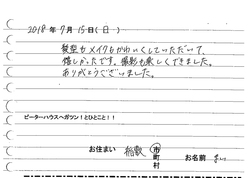 2018年7月15日(日)
髪型もメイクもかわいくしていただいて、
嬉しかったです。撮影も楽しくできました。
ありがとうございました。
ピーターハウスへガツン!とひとこと!!
お住まい 稲敷 市町村 お名前